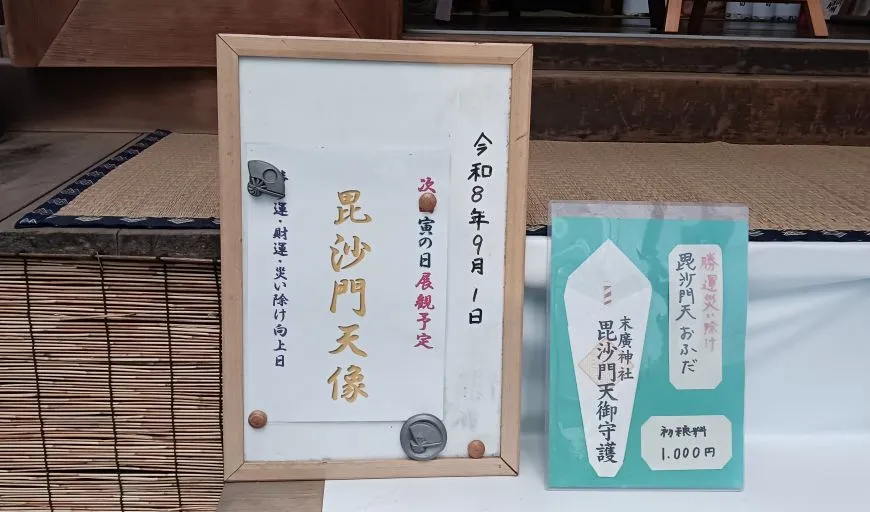 令和8年9月1日
次 寅の日 展観予定
毘沙門天像
運・財運・災い除け向上日
勝運災い除け
毘沙門天おふだ
末廣神社
毘沙門天御守護
初穂料
1.000円